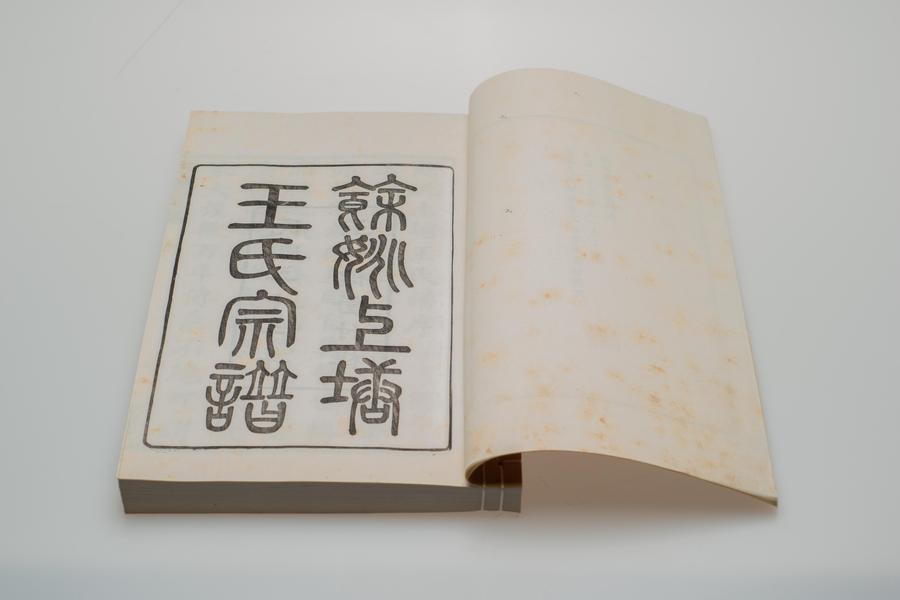 餘姚上塘
王氏宗譜